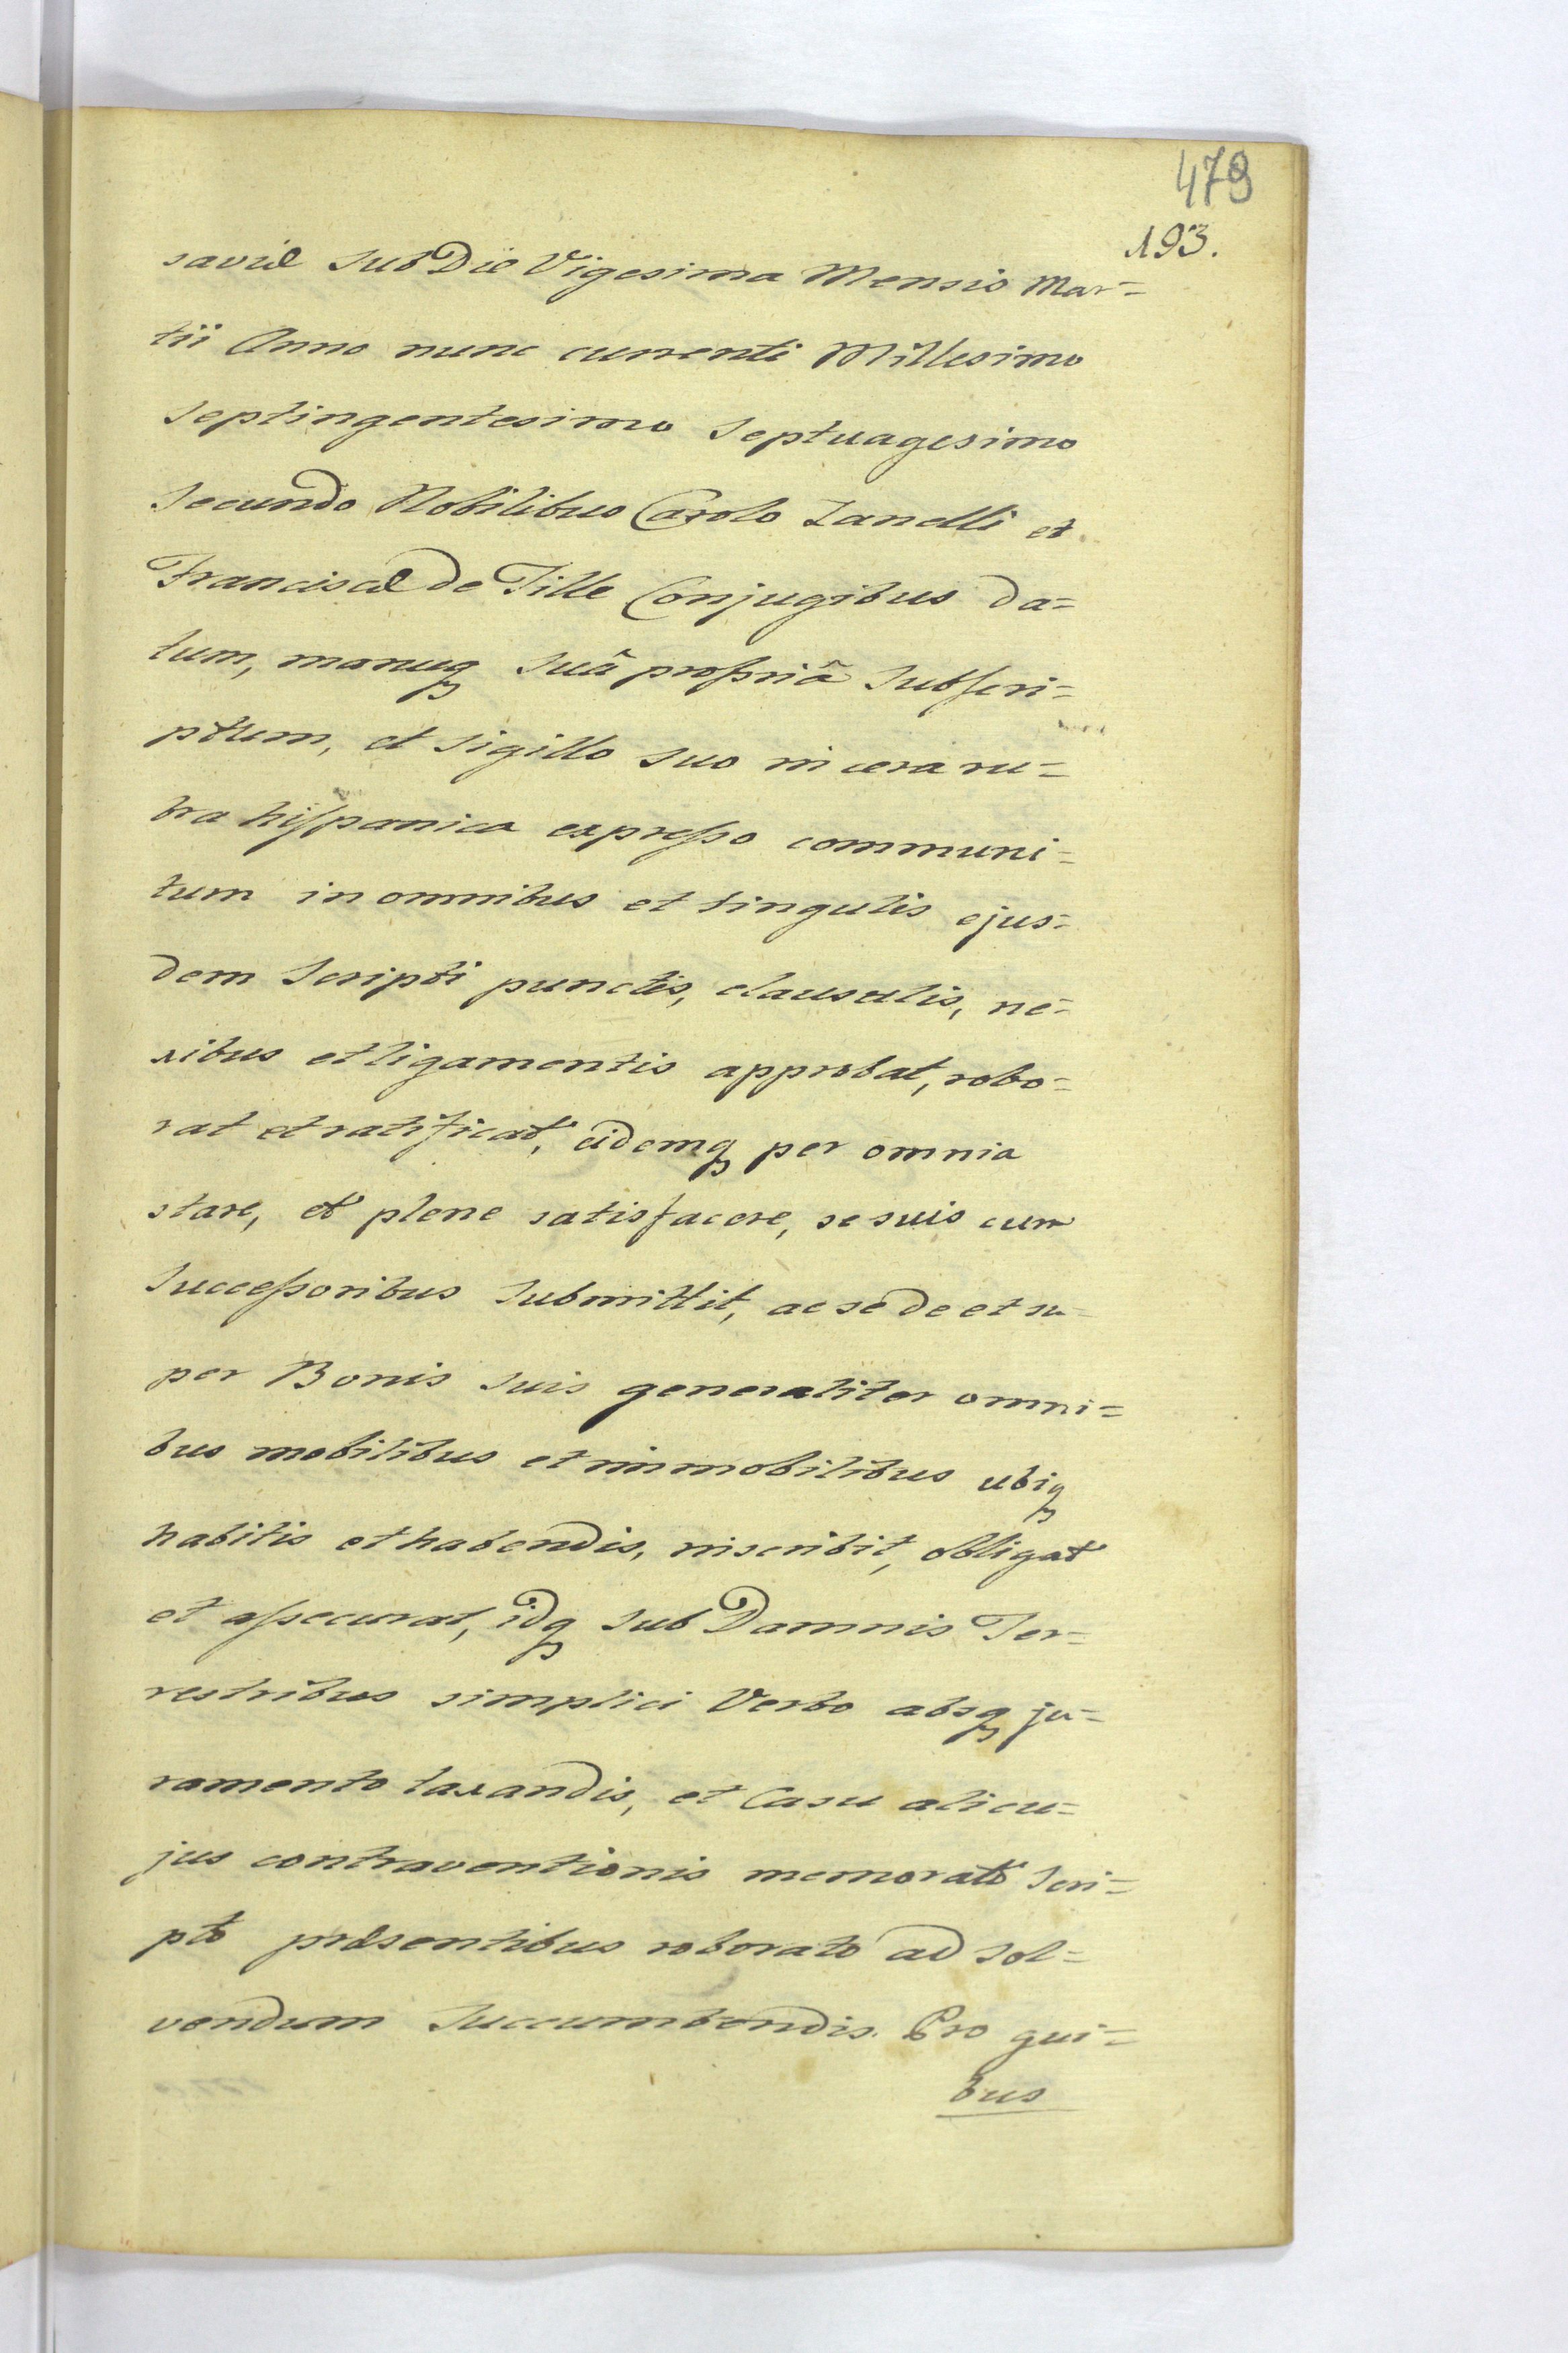 479
193.
saviæ sub Die Vigesima Mensis Mar=
tii Anno nunc currenti Millesimo
Septingentesimo Septuagesimo
Secundo Nobilibus Carolo Zanelli et
Franciscæ de Tille Conjugibus da=
tum, manuq suâ propriâ subscri=
ptum, et sigillo suo in cera ru=
bra hispanica expresso communi=
tum in omnibus et singulis ejus=
dem Scripti punctis, clausulis, ne=
xibus et ligamentis approbat, robo=
rat et ratificat, eidemq per omnia
stare, et plene satisfacere, se suis cum
Successoribus submittit, ac se de et su=
per Bonis suis generaliter omni=
bus mobilibus et immobilibus ubiq
habitis et habendis, inscribit, obligat
et assecurat, idq sub Damnis Ter=
restribus simplici Verbo absq ju=
ramento taxandis, et Casu alicu=
jus contraventionis memorato Scri=
pto præsentibus roborato ad sol=
vendum succumbendis. Pro qui=
bus